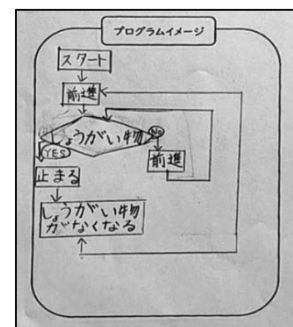 プログラムイメージ
スタート
前進
しょうがい物
YES
No
前進
止まる
しょうがい物
がなくなる